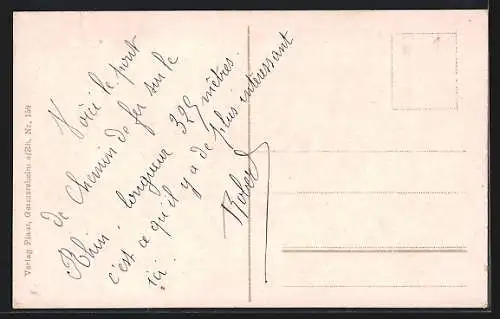 Voici le pont
de Chemin de fer sur le
Rhin, longueur 325 mètres.
c'est ce qu'il y a de plus intéressant
ici.
Robert
Verlag Germersheim a/Rh. Nr. 159